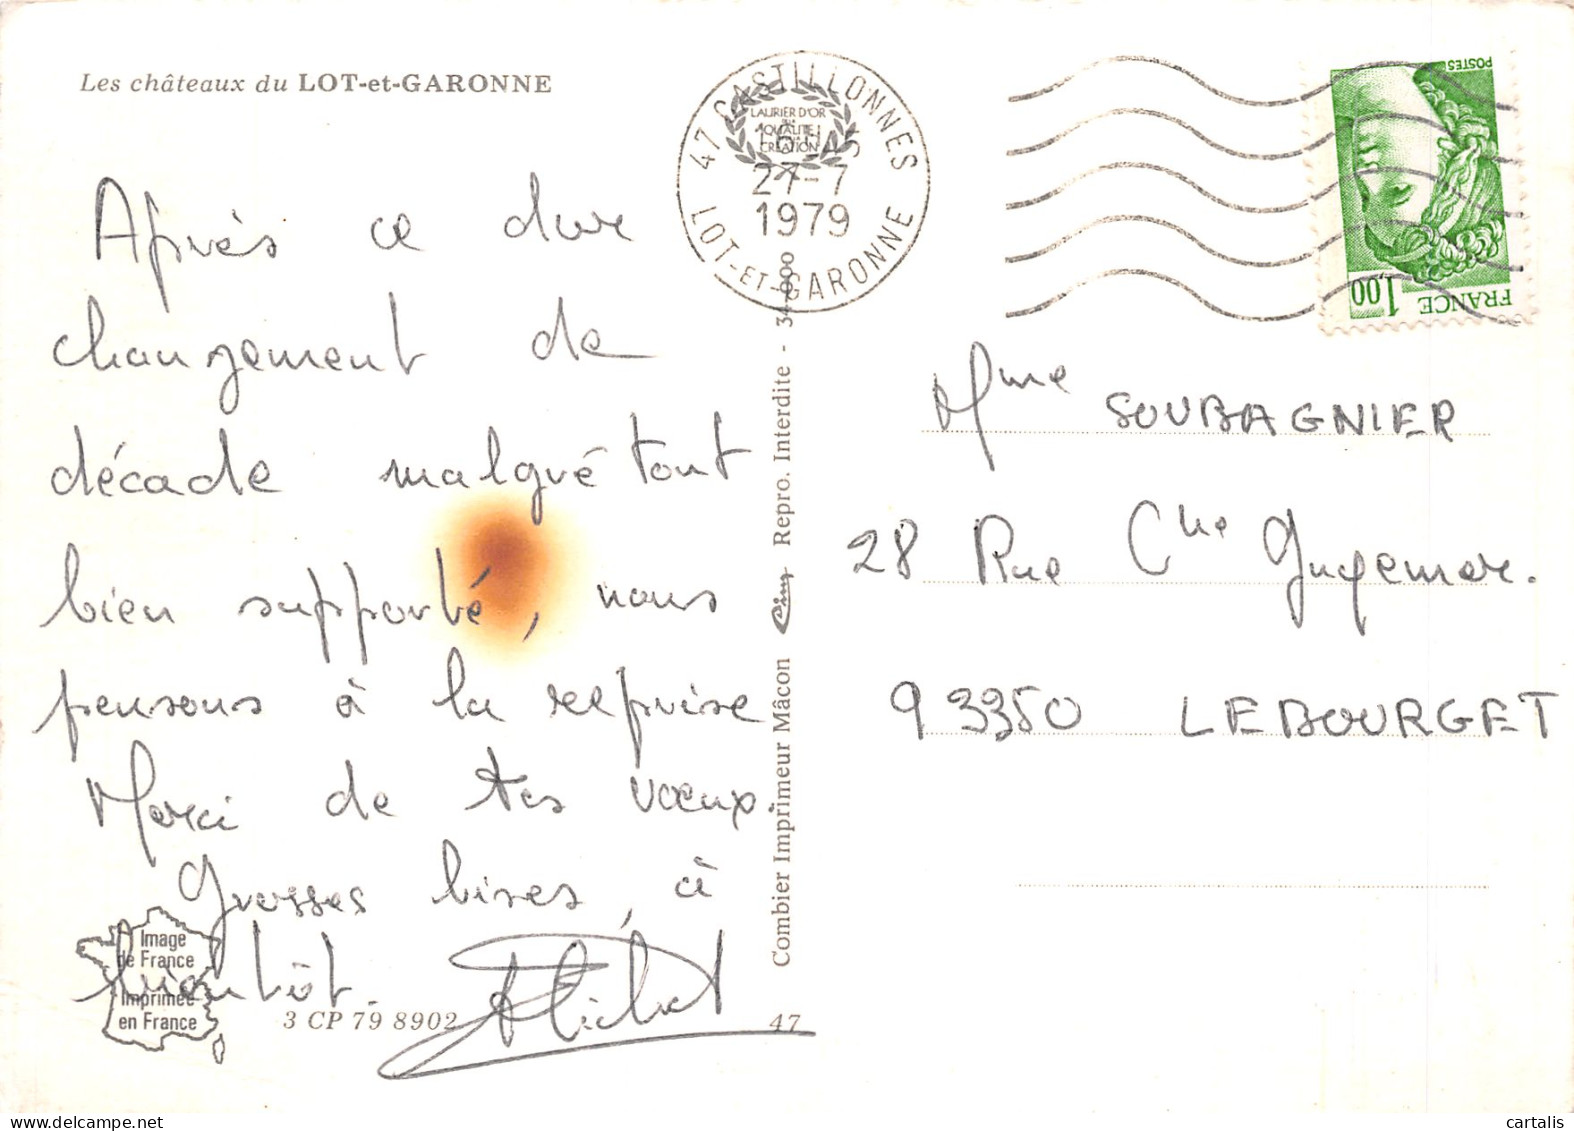 Les châteaux du LOT-et-GARONNE
Après ce dur
changement de
décade malgré tout
bien supporté, nous
pensons à la reprise
Merci de tes vœux.
Grosses bises, à
bientôt.
Michel
Image
de France
Imprimée
en France
3 CP 79 8902
47
Combier Imprimeur Mâcon Cim Repro. Interdite - 34
47 CASTILLONNES
LAURIER D'OR
DE LA
QUALITE
CREATION
27-7
1979
LOT-ET-GARONNE
POSTES
1,00
FRANCE
Mme SOUBAGNIER
28 Rue Che Guynemer.
93350 LE BOURGET
cartalis.com
www.delcampe.net